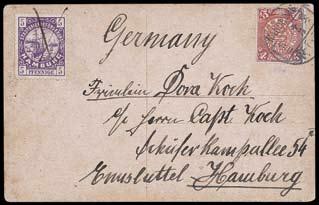 Germany
5 5
HAMBURG
5 PFENNIGE 5
Fräulein Dora Koch
c/o Herrn Capt. Koch
Schäferkampallee 54
Eimsbüttel Hamburg